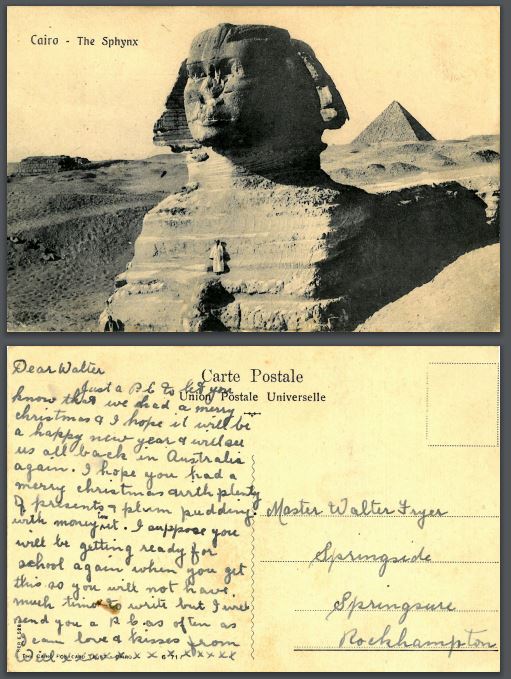 Cairo - The Sphynx
Carte Postale
Union Postale Universelle
Dear Walter
Just a P C to let you
know that we had a merry
christmas & I hope it will be
a happy new year & will see
us all back in Australia
again. I hope you had a
merry christmas with plenty
of presents & plum pudding
with money in it. I suppose you
will be getting ready for
school again when you get
this so you will not have
much time to write but I will
send you a P C as often as
I can love & kisses from
x x x x x x x x
Master Walter Fryer
Springside
Springsure
Rockhampton
THE CAIRO POSTCARD TRUST CAIRO